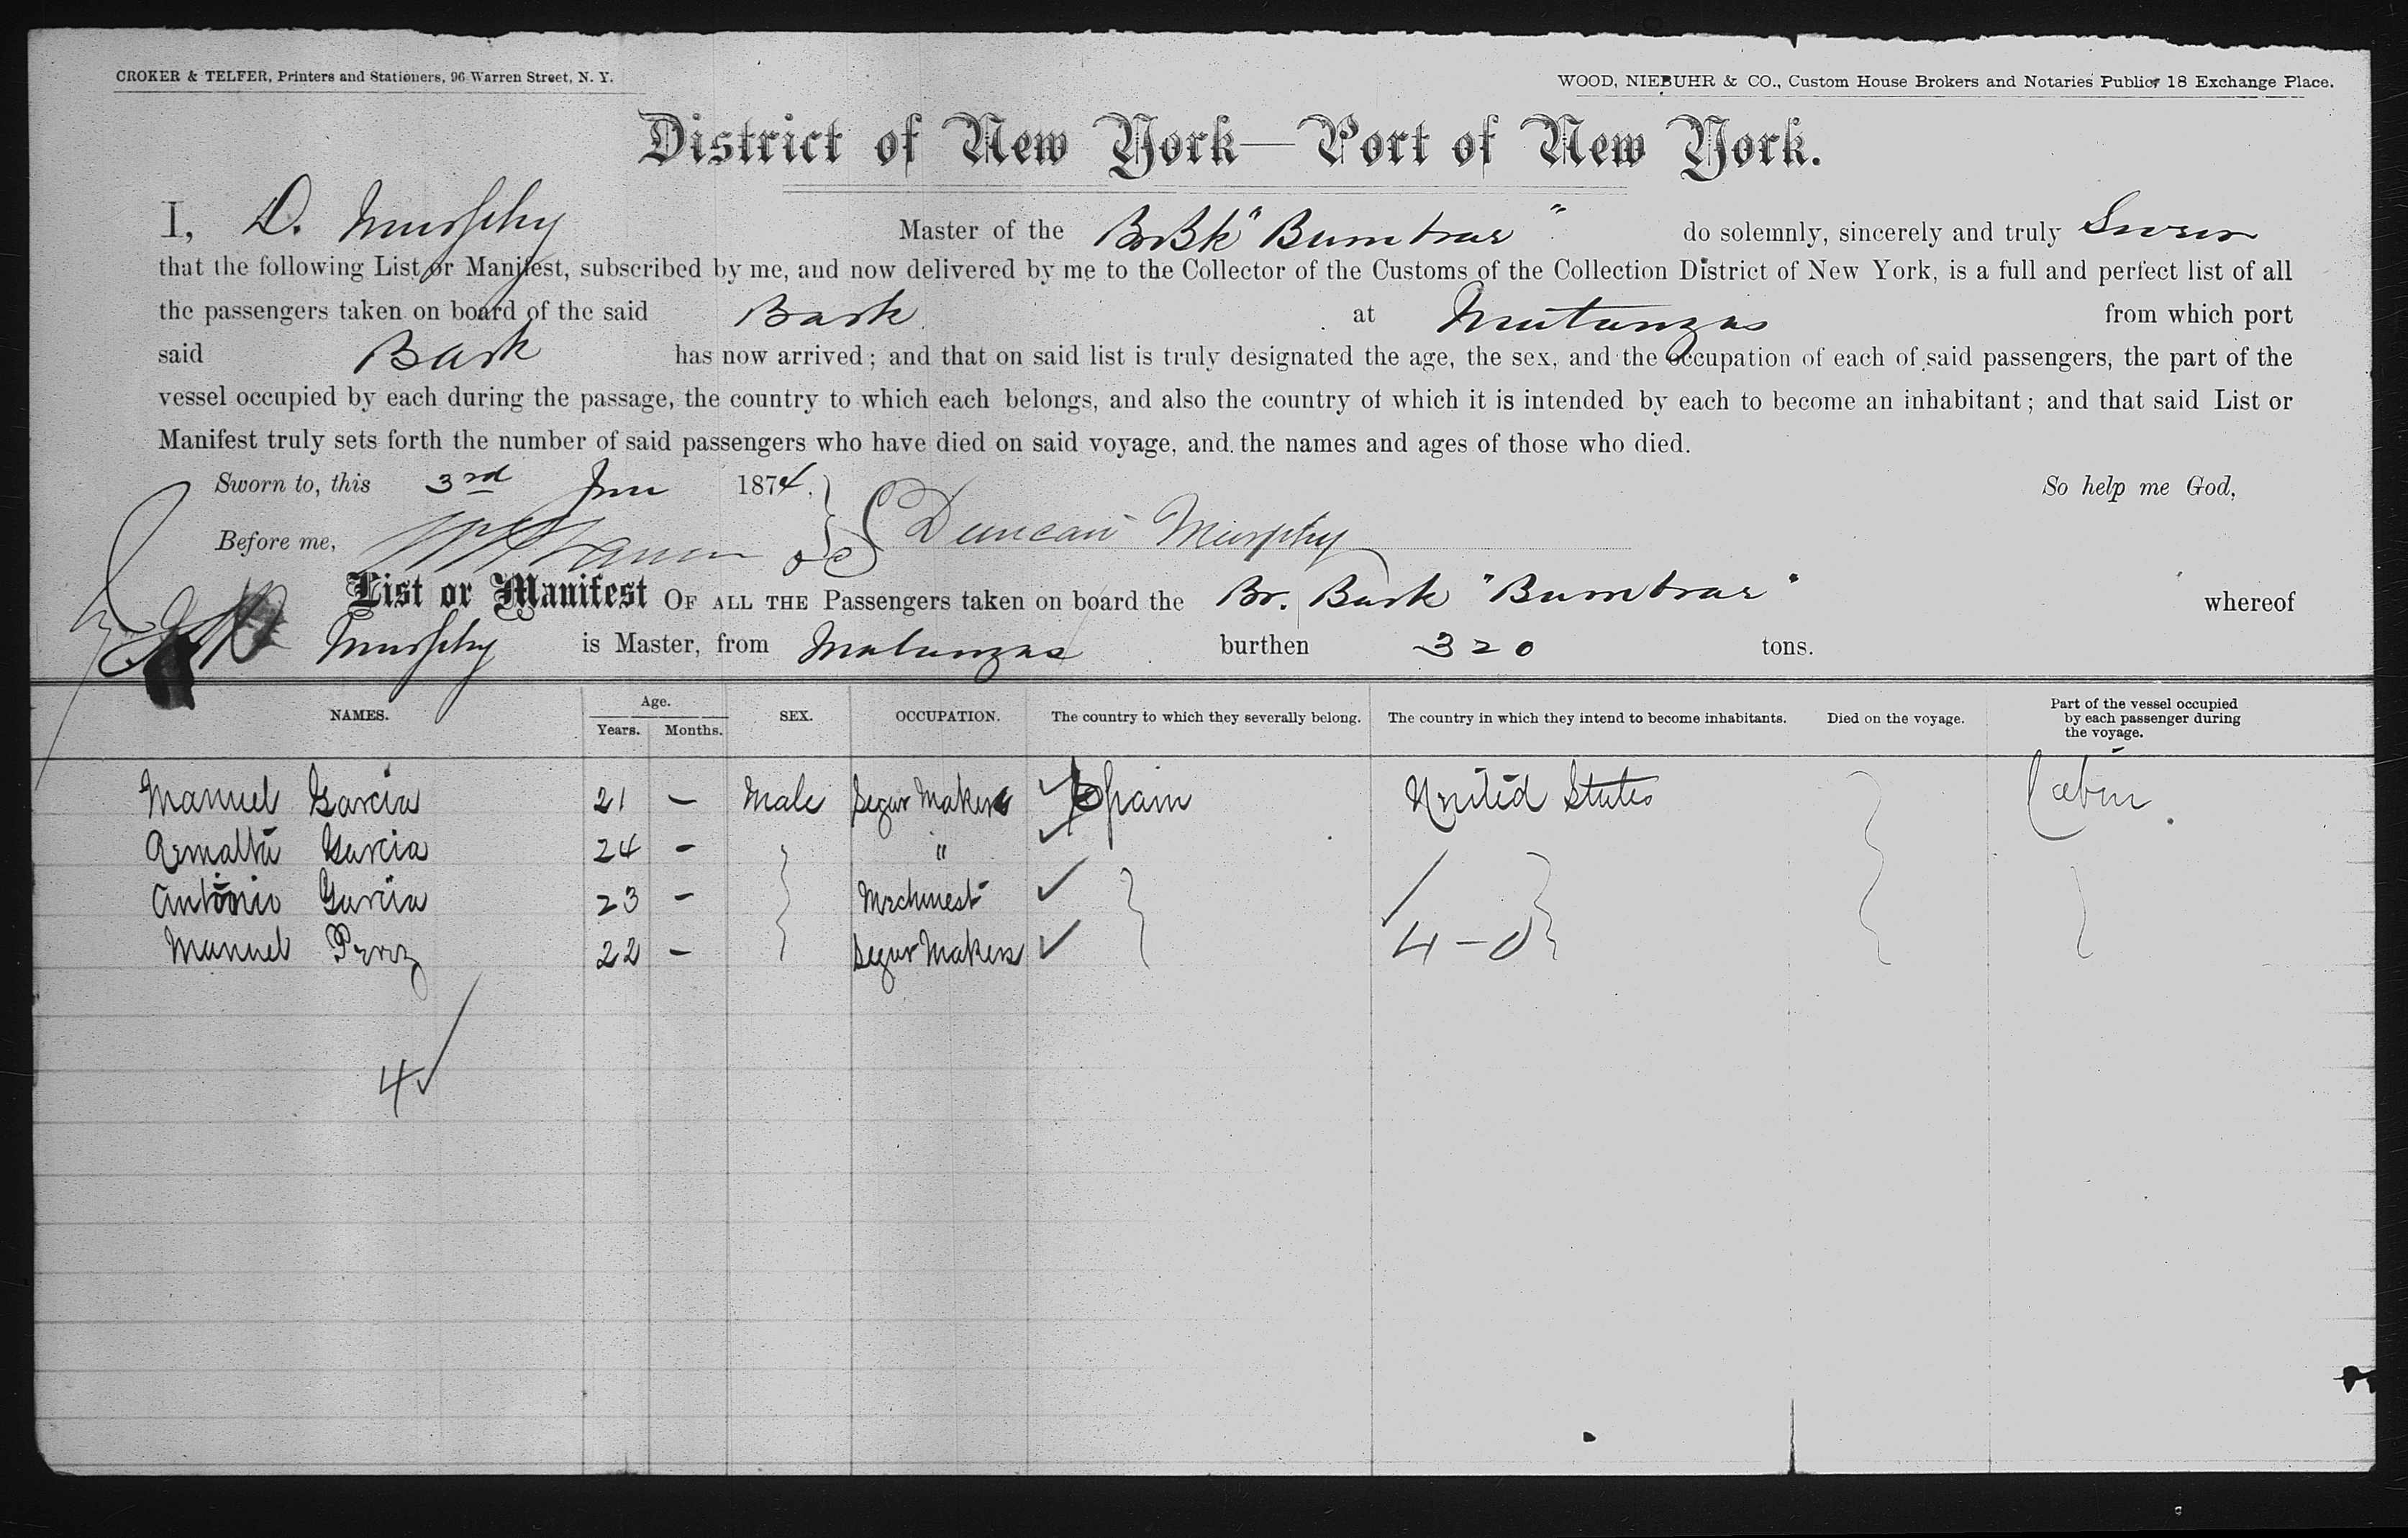 CROKER & TELFER, Printers and Stationers, 96 Warren Street, N. Y.
WOOD, NIEBUHR & CO., Custom House Brokers and Notaries Public, 18 Exchange Place.
District of New York—Port of New York.
I, D. Murphy Master of the Br Bk "Bumtrae" do solemnly, sincerely and truly Swear
that the following List or Manifest, subscribed by me, and now delivered by me to the Collector of the Customs of the Collection District of New York, is a full and perfect list of all
the passengers taken on board of the said Bark at Matanzas from which port
said Bark has now arrived; and that on said list is truly designated the age, the sex, and the occupation of each of said passengers, the part of the
vessel occupied by each during the passage, the country to which each belongs, and also the country of which it is intended by each to become an inhabitant; and that said List or
Manifest truly sets forth the number of said passengers who have died on said voyage, and the names and ages of those who died.
Sworn to, this 3rd 1874. So help me God,
Before me, Duncan Murphy
List or Manifest OF ALL THE Passengers taken on board the Br. Bark "Bumtrae" whereof
Murphy is Master, from Matanzas burthen 320 tons.
NAMES. Age. Years. Months. SEX. OCCUPATION. The country to which they severally belong. The country in which they intend to become inhabitants. Died on the voyage. Part of the vessel occupied by each passenger during the voyage.
Manuel Garcia 21 — Male Segar Makers Spain United States Cabin
Garcia 24 — "
Antonio Garcia 23 — Mechinest
Manuel Perez 22 — Segar Makers 4 – 0
4